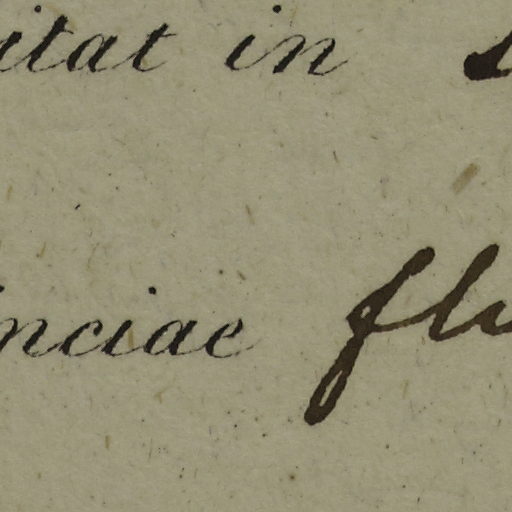 itat in
nciae flu